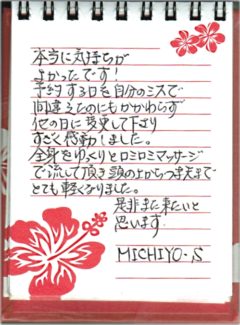 本当に気持ちが
よかったです!
予約する日を自分のミスで
間違えたのにもかかわらず
他の日に変更して下さり
すごく感動しました。
全身をゆっくりとロミロミマッサージ
で流して頂き頭の上からつま先まで
とても軽くなりました。
是非また来たいと
思います
MICHIYO.S